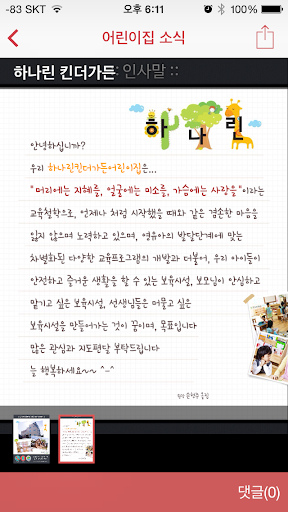 -83 SKT 오후 6:11 100%
어린이집 소식
하나린 킨더가든 :: 인사말 ::
하나린
안녕하십니까?
우리 하나린킨더가든어린이집은...
"머리에는 지혜를, 얼굴에는 미소를, 가슴에는 사랑을"이라는
교육철학으로, 언제나 처음 시작했을 때와 같은 겸손한 마음을
잃지 않으며 노력하고 있으며, 영유아의 발달단계에 맞는
차별화된 다양한 교육프로그램의 개발과 더불어, 우리 아이들이
안전하고 즐거운 생활을 할 수 있는 보육시설, 부모님이 안심하고
맡기고 싶은 보육시설, 선생님들은 머물고 싶은
보육시설을 만들어가는 것이 꿈이며, 목표입니다
많은 관심과 지도편달 부탁드립니다
늘 행복하세요~~ ^-^
댓글(0)